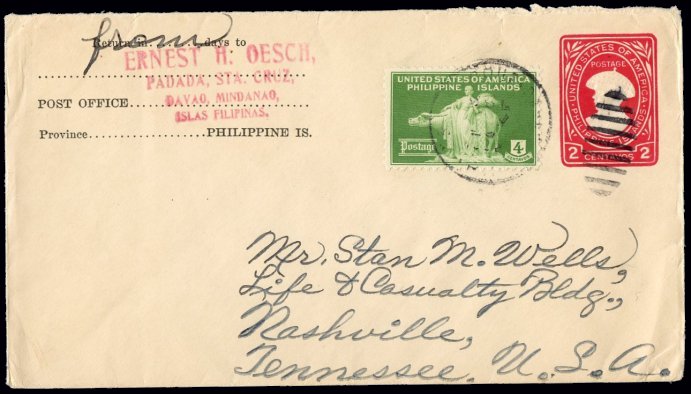 from
Return in..........days to
ERNEST H. OESCH,
PADADA, STA. CRUZ,
POST OFFICE
DAVAO, MINDANAO,
ISLAS FILIPINAS.
Province....................PHILIPPINE IS.
UNITED STATES OF AMERICA
PHILIPPINE ISLANDS
Postage
4
CENTAVOS
UNITED STATES OF AMERICA
POSTAGE
PHILIPPINE ISLANDS
2 CENTAVOS 2
Mr. Stan M. Wells,
Life & Casualty Bldg.,
Nashville,
Tennessee, U. S. A.